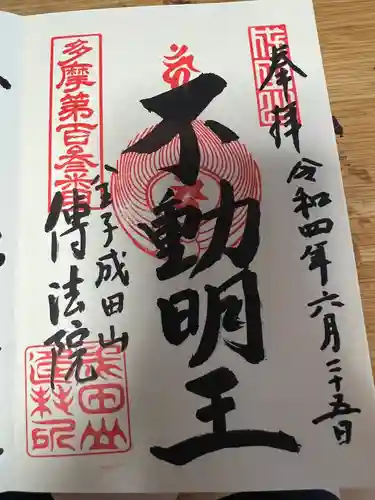 奉拝
令和四年六月二十五日
不動明王
金子成田山
傳法院
多摩第百参番
成田山